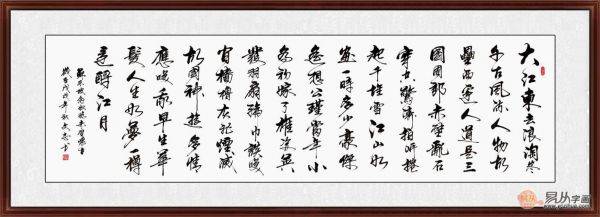 大江東去浪淘盡
千古風流人物故
壘西邊人道是三
國周郎赤壁亂石
穿空驚濤拍岸捲
起千堆雪江山如
畫一時多少豪傑
遙想公瑾當年小
喬初嫁了雄姿英
發羽扇綸巾談笑
間檣櫓灰飛煙滅
故國神遊多情
應笑我早生華
髮人生如夢一樽
還酹江月
歲在戊戌年
易从字画
www.yczihua.com